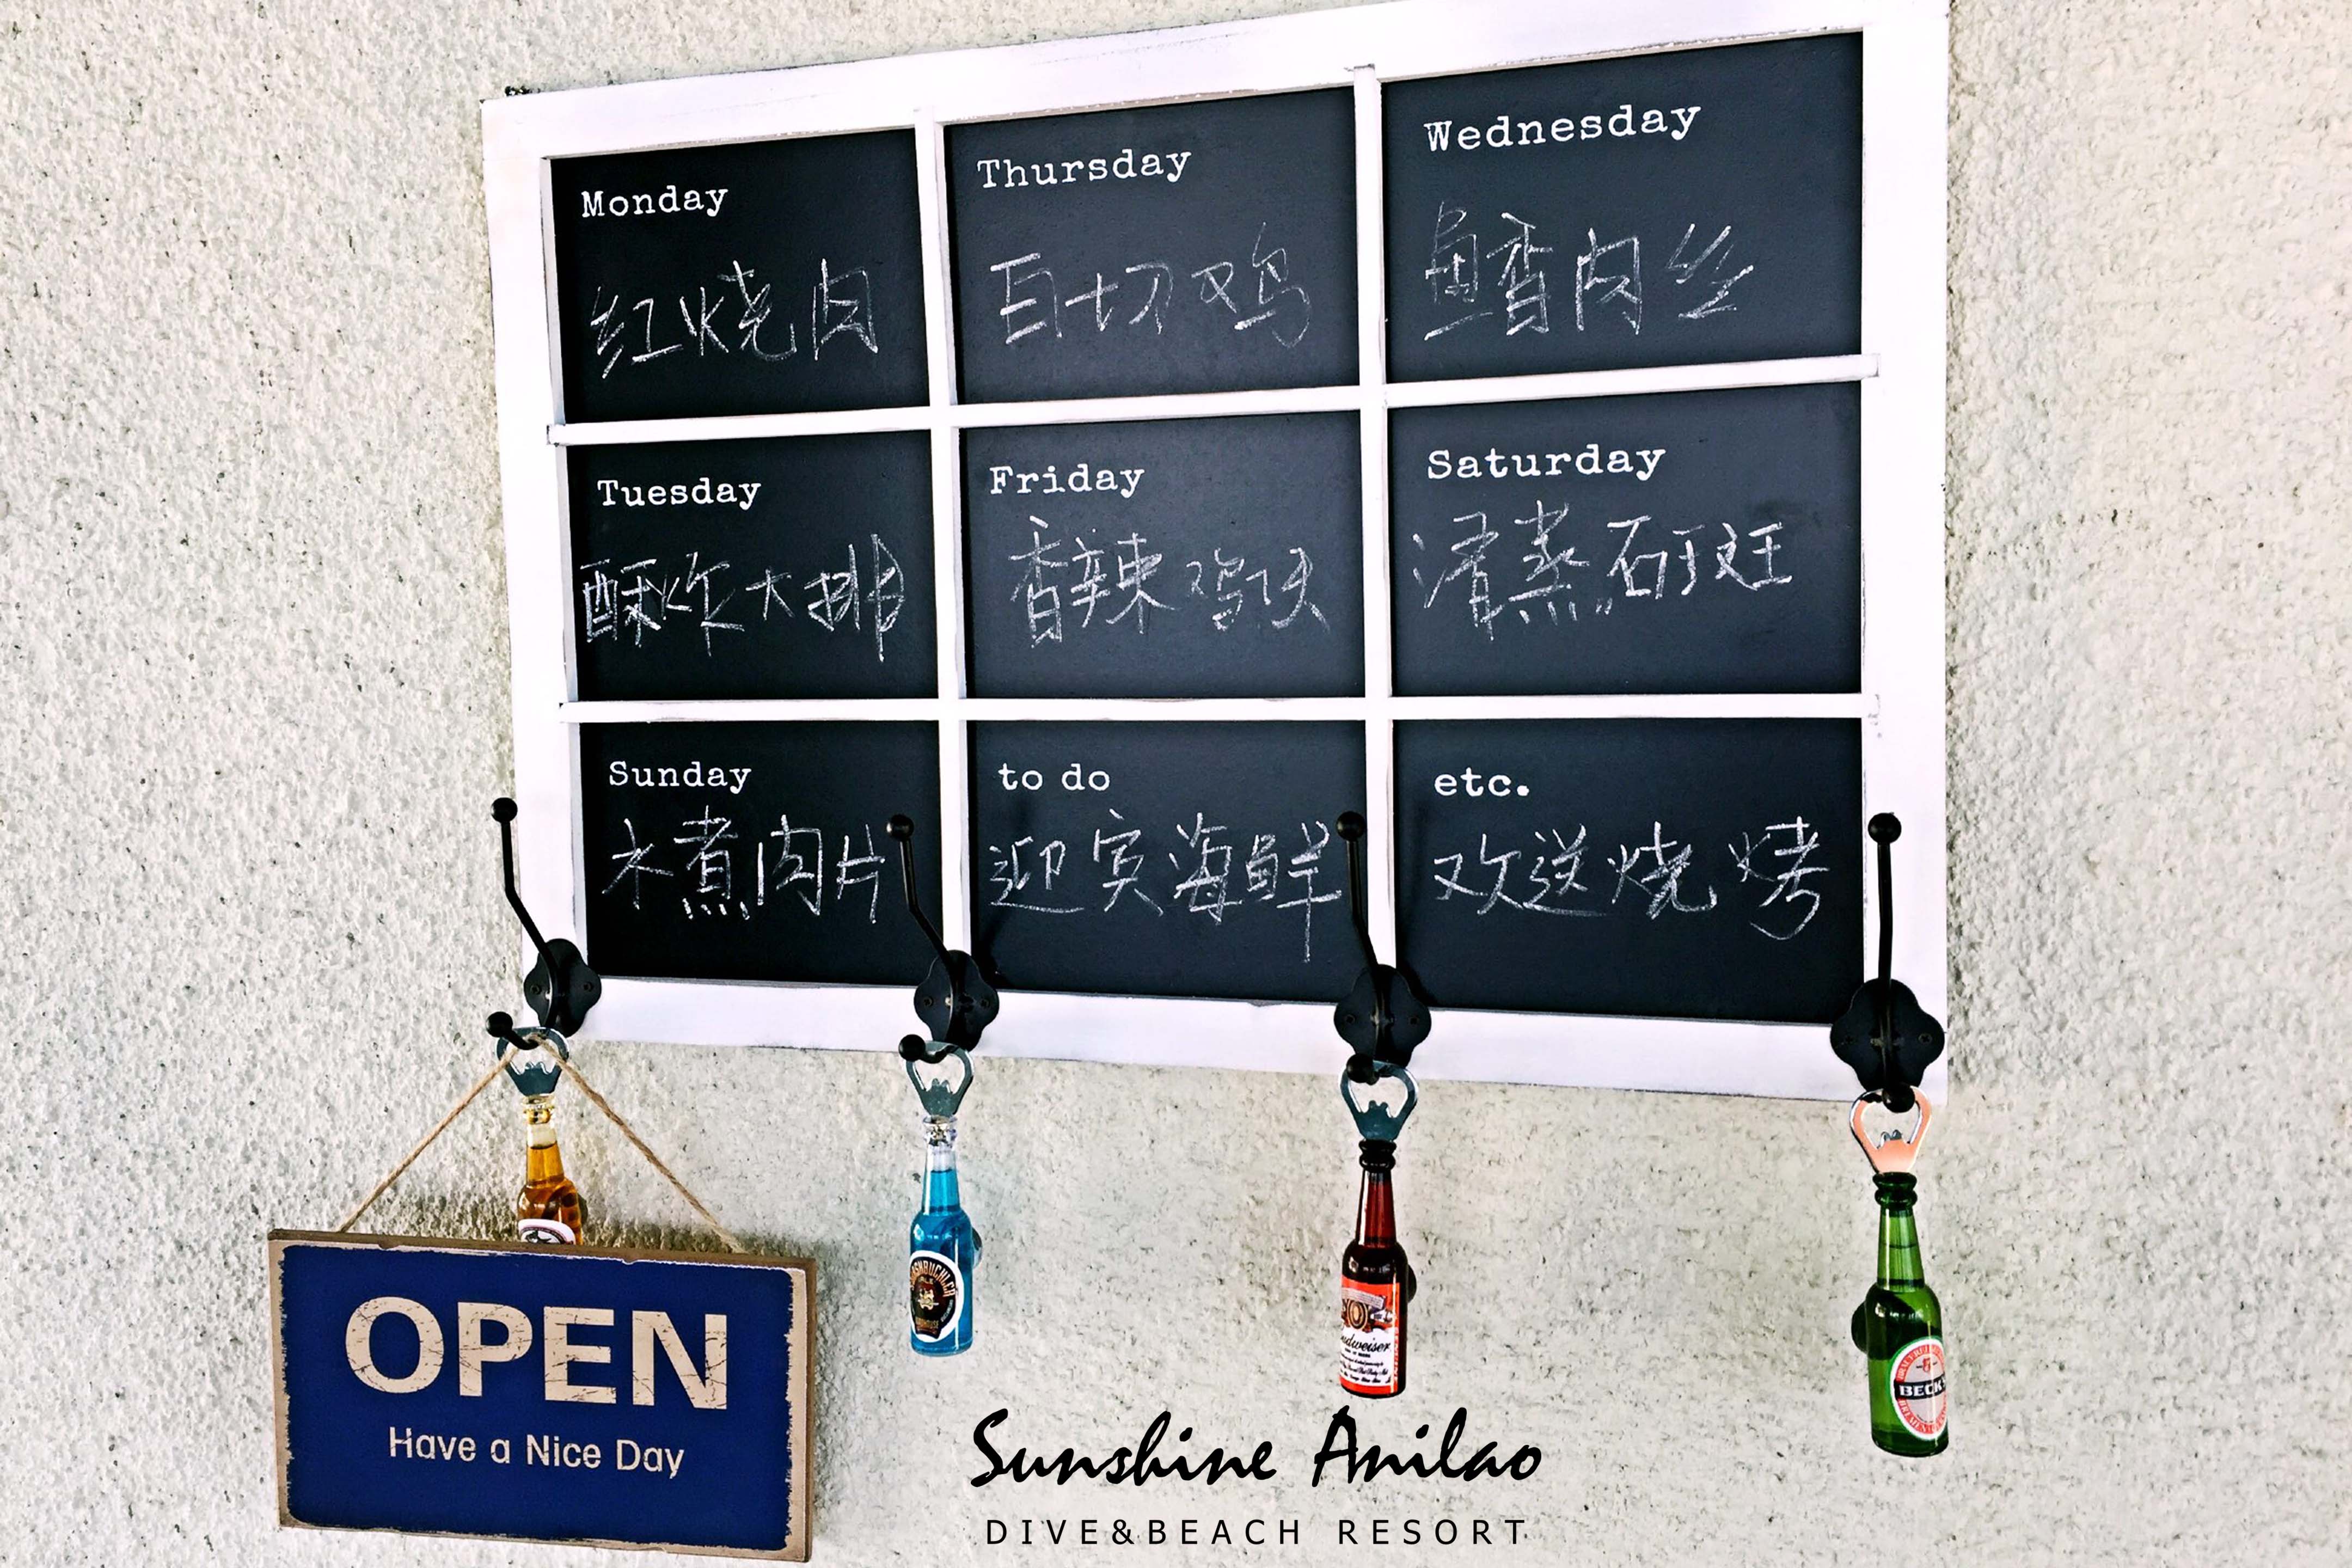 Monday
红烧肉
Thursday
白切鸡
Wednesday
鱼香肉丝
Tuesday
酥炸大排
Friday
香辣鸡块
Saturday
清蒸石斑
Sunday
水煮肉片
to do
迎宾海鲜
etc.
欢送烧烤
OPEN
Have a Nice Day
Budweiser
BECK'S
Sunshine Anilao
DIVE&BEACH RESORT